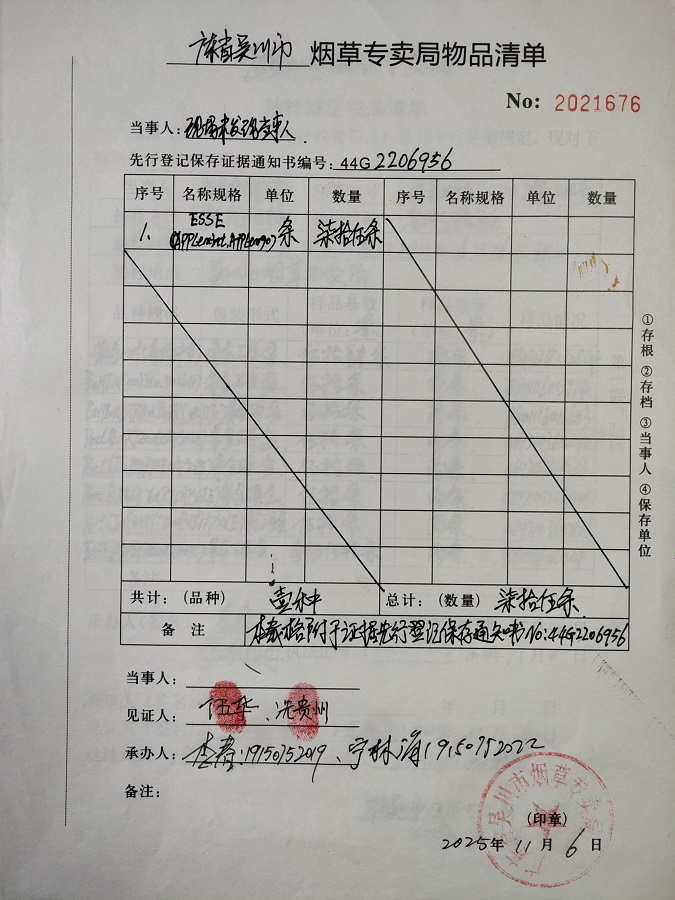 广东省吴川市 烟草专卖局物品清单
No: 2021676
当事人: 现场未发现当事人
先行登记保存证据通知书编号: 44G2206956
序号 名称规格 单位 数量 序号 名称规格 单位 数量
1. ESSE 条 柒拾伍条
共计: (品种) 壹种 总计: (数量) 柒拾伍条
备注 本表格附于证据先行登记保存通知书No:44G2206956
①存根 ②存档 ③当事人 ④保存单位
当事人:
见证人: 伍华、冼贵州
承办人: 19150752019、宁林海19150752022
备注:
广东省吴川市烟草专卖局
(印章)
2025年11月6日